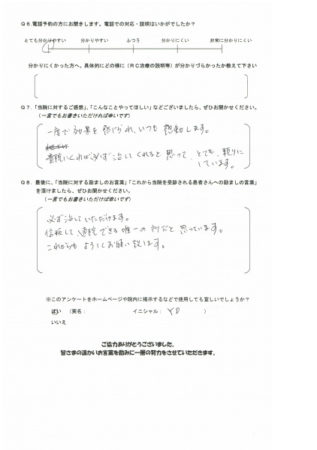 Q6.電話予約の方にお聞きします。電話での対応・説明はいかがでしたか?
とても分かりやすい 分かりやすい ふつう 分かりにくい 非常に分かりにくい
分かりにくかった方へ、具体的にどの様に(RC治療の説明等)が分かりづらかったか教えて下さい
Q7.「当院に対するご感想」、「こんなことやってほしい」などございましたら、ぜひお聞かせください。
(一言でもお書きいただければ幸いです)
一度で効果を感じられ、いつも感動します。
来れば必ず治してくれると思って、とても頼りに
しています。
Q8.最後に、「当院に対する励ましのお言葉」「これから当院を受診される患者さんへの励ましの言葉」
を頂けましたら、ぜひお聞かせください。
(一言でもお書きいただければ幸いです)
必ず治していただけます。
信頼して通院できる唯一の所だと思っています。
これからも よろしくお願い致します。
※このアンケートをホームページや院内に掲示するなどで使用しても宜しいでしょうか?
はい (実名: イニシャル: Y.O )
いいえ
ご協力ありがとうございました。
皆さまの温かいお言葉を励みに一層の努力をさせていただきます。